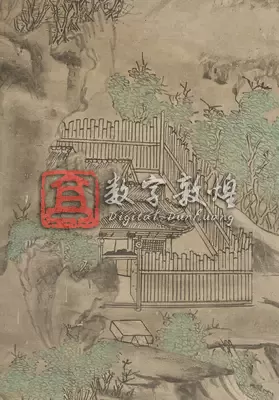 数字敦煌
Digital-Dunhuang